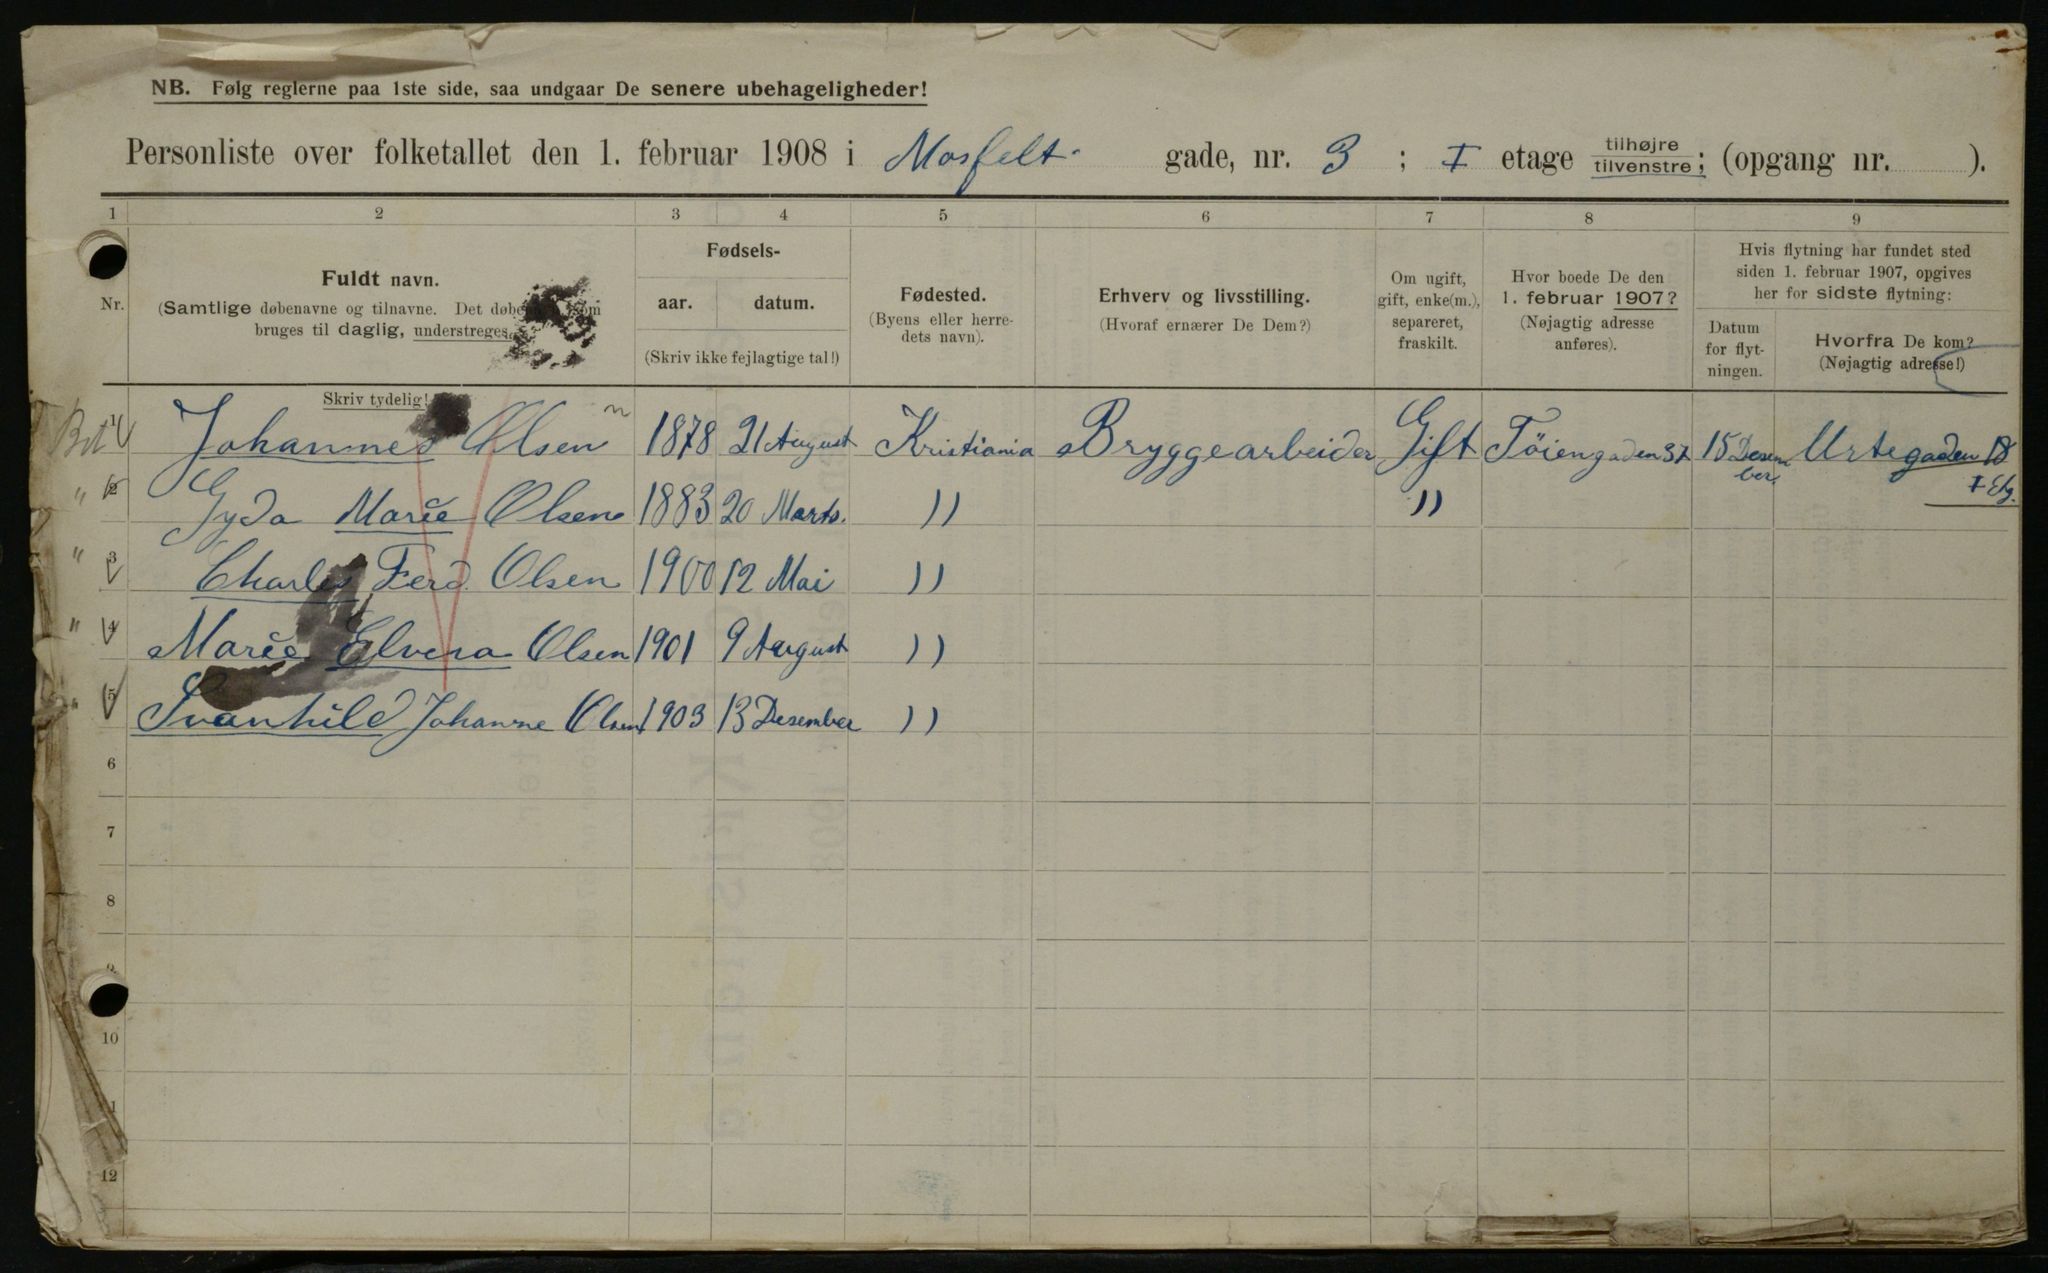 NB. Følg reglerne paa 1ste side, saa undgaar De senere ubehageligheder!
Personliste over folketallet den 1. februar 1908 i Mosfelt gade, nr. 3 ; I etage tilhøjre tilvenstre; (opgang nr. ).
1 2 3 4 5 6 7 8 9
Nr.
Fuldt navn.
(Samtlige døbenavne og tilnavne. Det som
bruges til daglig, understreges.
Skriv tydelig!
Fødsels-
aar. datum.
(Skriv ikke fejlagtige tal!)
Fødested.
(Byens eller herre-
dets navn).
Erhverv og livsstilling.
(Hvoraf ernærer De Dem?)
Om ugift,
gift, enke(m.),
separeret,
fraskilt.
Hvor boede De den
1. februar 1907?
(Nøjagtig adresse
anføres).
Hvis flytning har fundet sted
siden 1. februar 1907, opgives
her for sidste flytning:
Datum
for flyt-
ningen.
Hvorfra De kom?
(Nøjagtig adresse!)
1 Johannes Olsen 1878 21 August Kristiania Bryggearbeider Gift Töiengaden 37 15 Desem ber Urtegaden 18 I Etg.
" 2 Gyda Marie Olsen 1883 20 Marts. )) ))
" 3 Charles Ferd. Olsen 1900 12 Mai ))
" 4 Marie Elvera Olsen 1901 9 August ))
" 5 Svanhild Johanne Olsen 1903 13 Desember ))
6
7
8
9
10
12